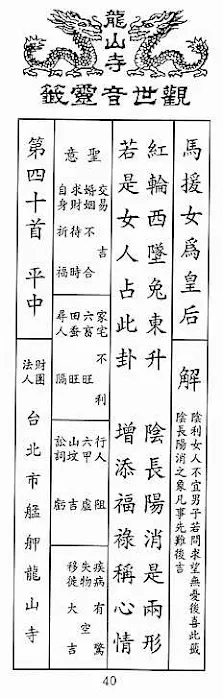 龍山寺
觀世音靈籤
馬援女爲皇后
解
陰利女人不宜男子若問求望無憂後喜此籤
陰長陽消之象凡事先難後吉
紅輪西墜兔東升 陰長陽消是兩形
若是女人占此卦 增添福祿稱心情
聖意
交易吉
婚姻不合
求財待時
自身祈福
家宅不利
六畜旺
田蚕旺
尋人隔
行人阻
六甲虛
山墳吉
訟詞虧
疾病有驚
失物空
移徙大吉
第四十首 平中
財團法人
台北市艋舺龍山寺
40